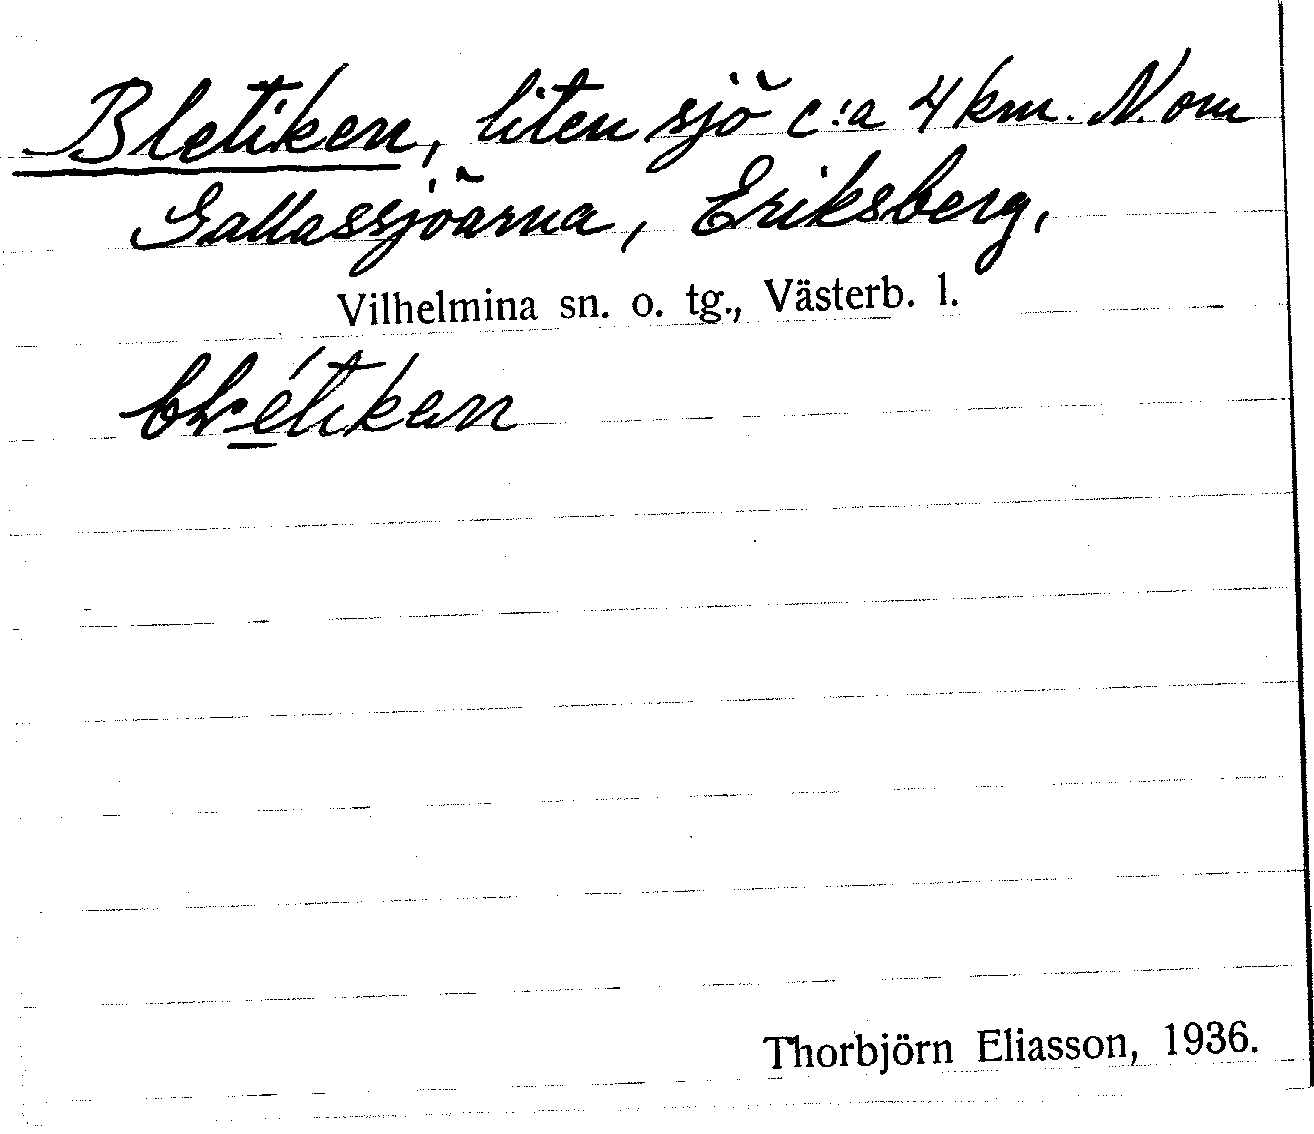 Bletiken, liten sjö c:a 4 km. N. om
Gallassjöarna, Eriksberg,
Vilhelmina sn. o. tg., Västerb. l.
Thorbjörn Eliasson, 1936.